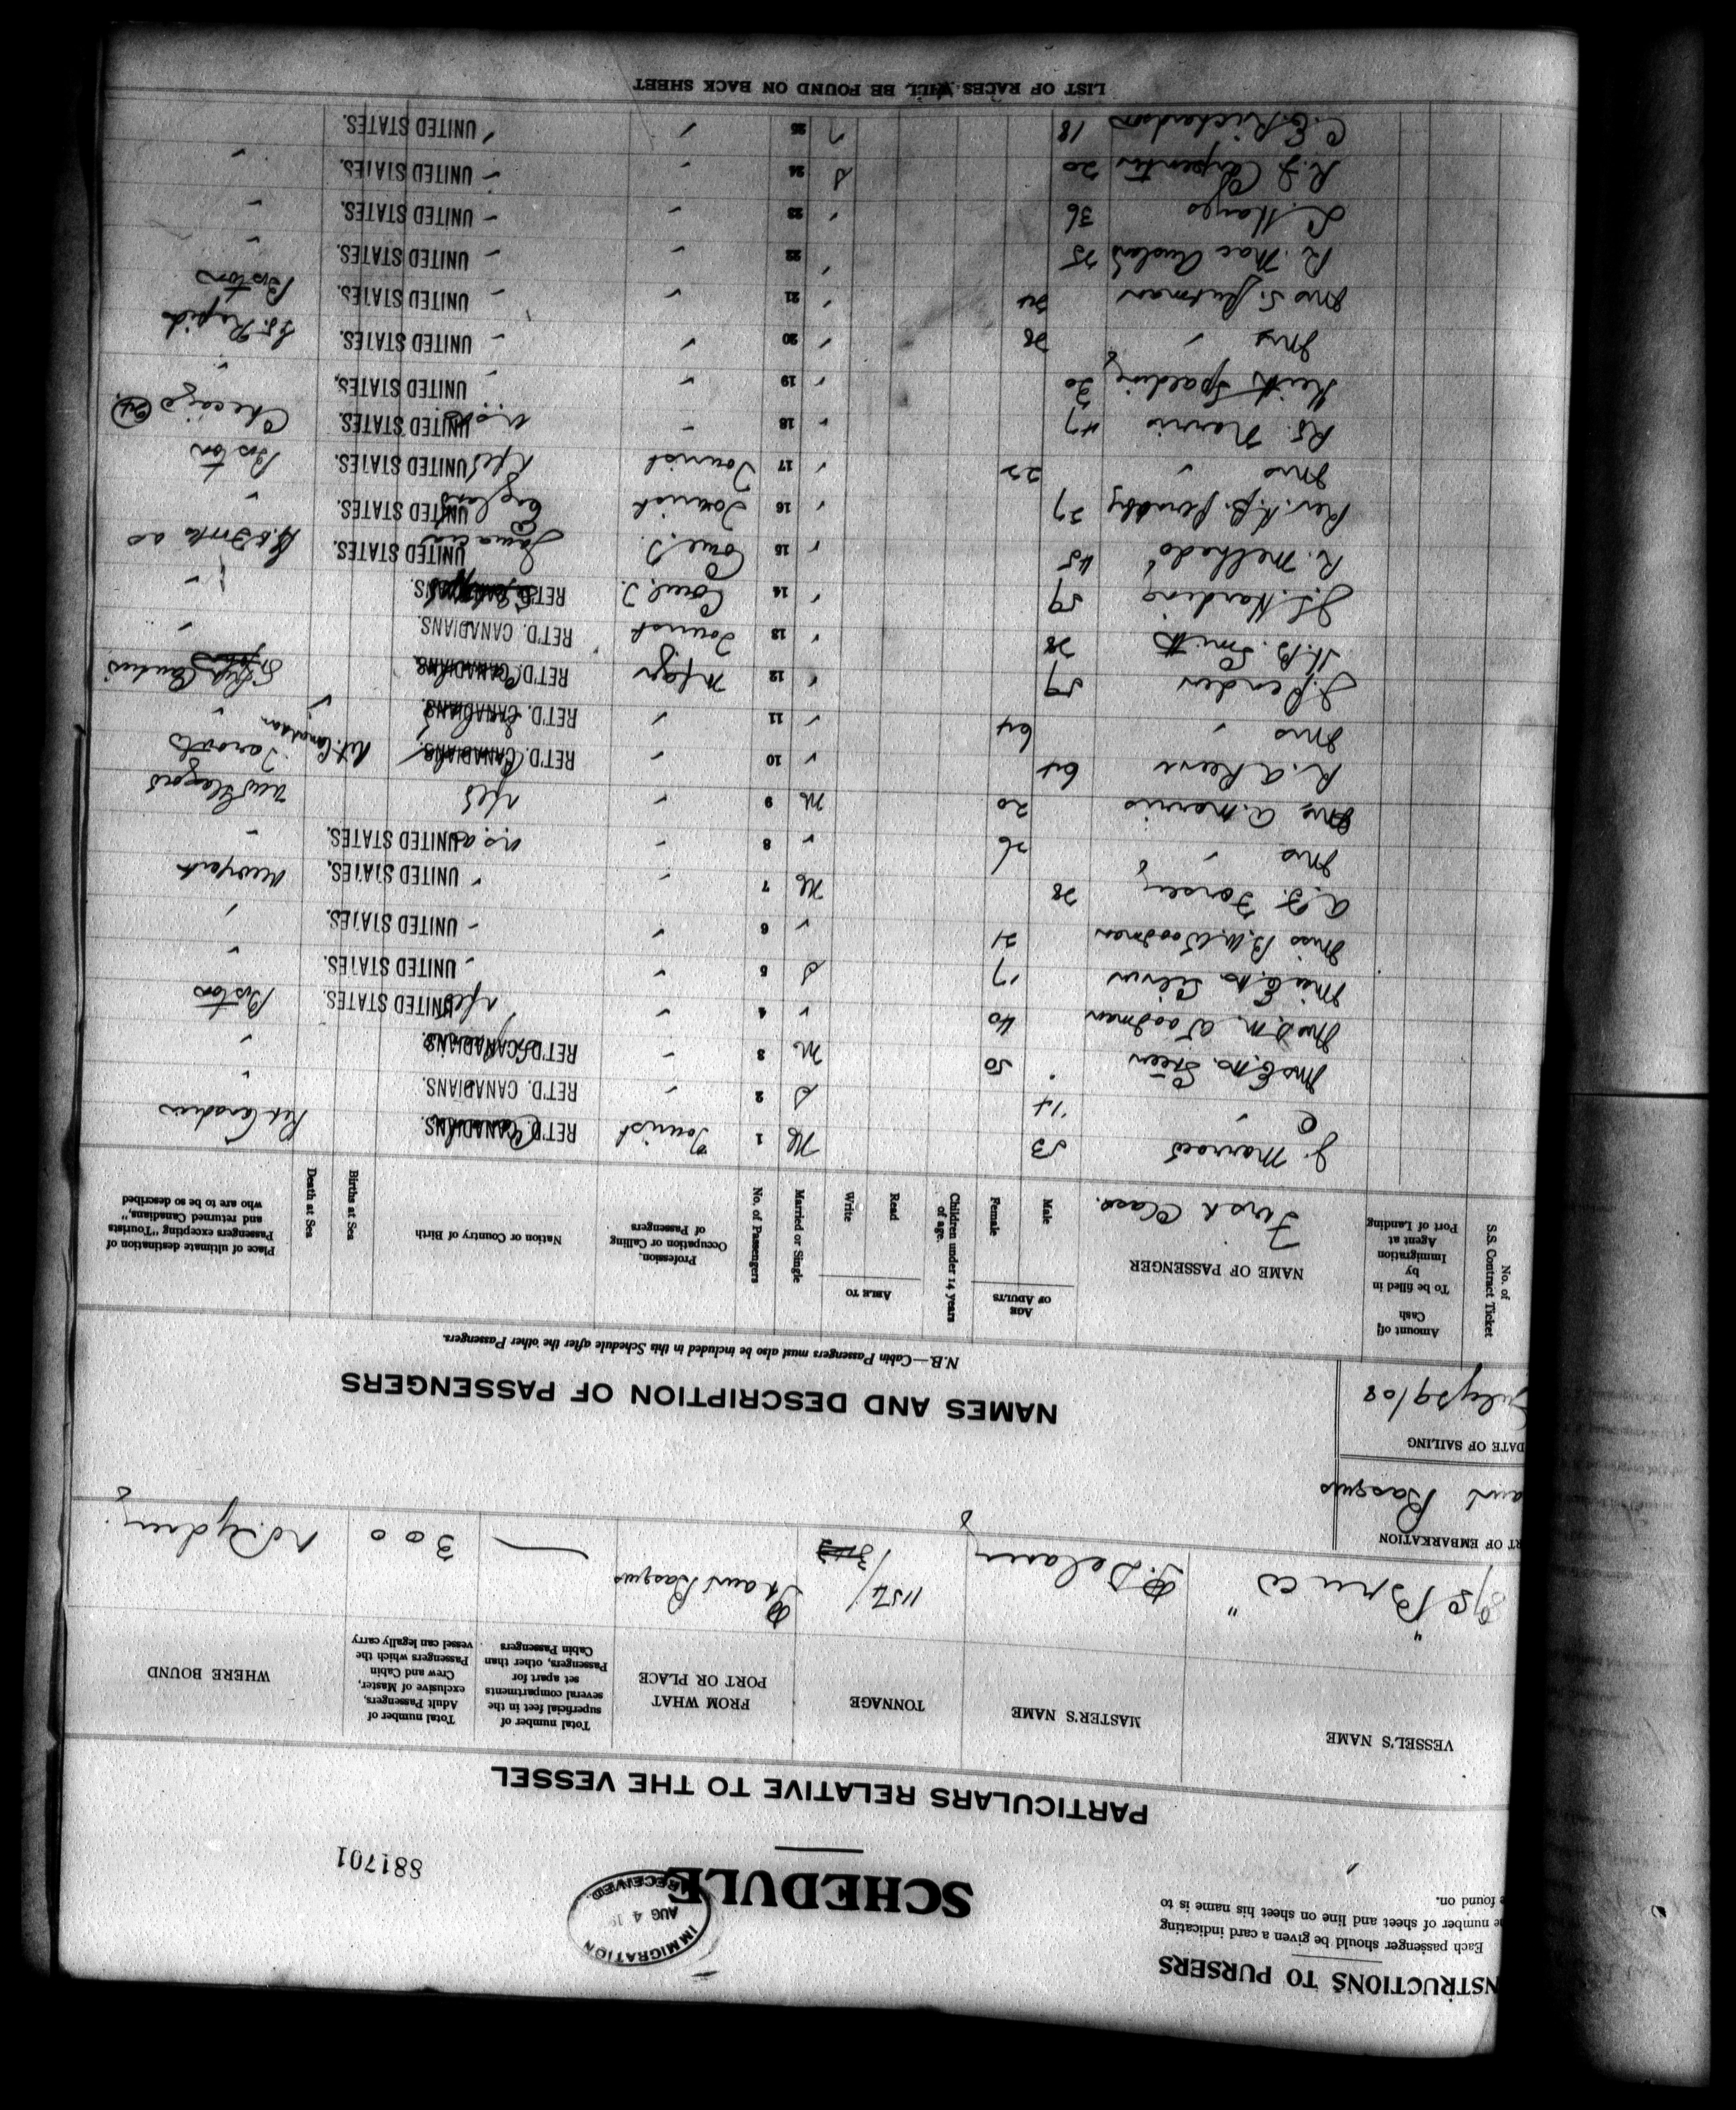 INSTRUCTIONS TO PURSERS
Each passenger should be given a card indicating
the number of sheet and line on sheet his name is to
be found on.
IMMIGRATION
AUG 4 19
RECEIVED
SCHEDULE
881701
PARTICULARS RELATIVE TO THE VESSEL
VESSEL'S NAME MASTER'S NAME TONNAGE FROM WHAT PORT OR PLACE Total number of superficial feet in the several compartments set apart for Passengers, other than Cabin Passengers Total number of Adult Passengers, exclusive of Master, Crew and Cabin Passengers which the vessel can legally carry WHERE BOUND
S/S "Bruce" P. Delaney 1154/ Port aux Basques — 300 No. Sydney
PORT OF EMBARKATION
aux Basques
DATE OF SAILING
July 29/08
NAMES AND DESCRIPTION OF PASSENGERS
N.B.—Cabin Passengers must also be included in this Schedule after the other Passengers.
No. of S.S. Contract Ticket Amount of Cash To be filled in by Immigration Agent at Port of Landing NAME OF PASSENGER AGE OF ADULTS Male Female Children under 14 years of age. ABLE TO Read Write Married or Single No. of Passengers Profession, Occupation or Calling of Passengers Nation or Country of Birth Births at Sea Death at Sea Place of ultimate destination of Passengers excepting "Tourists and returned Canadians," who are to be so described
First Class.
J. 53 M 1 Tourist RET'D. CANADIANS. Ret Canadian
C " 14 S 2 " RET'D. CANADIANS. "
Mrs E. M. Steen 50 M 3 " RET'D. CANADIANS. "
Mrs D. M. Woodman 40 " 4 " Nfld UNITED STATES. Boston
Miss E. M. 17 S 5 " UNITED STATES. "
Miss B. W. Woodman 21 " 6 " UNITED STATES. "
A. F. Forsey 28 M 7 " UNITED STATES. New York
Mrs " 26 " 8 " U.S.A. UNITED STATES. "
Mrs A. Morris 20 M 9 " Nfld New Glasgow
R. A. Reeve 64 " 10 " RET'D. CANADIANS. Ret. Canadian Toronto
Mrs " 64 " 11 " RET'D. CANADIANS. "
J. Pender 59 " 12 Mfgr RET'D. CANADIANS.
H. B. Smith 28 " 13 Tourist RET'D. CANADIANS. "
J. S. Harding 59 " 14 Com. T. RET'D. CANADIANS. "
R. Melhado 45 " 15 Com. T. Jamaica UNITED STATES.
Rev. 27 " 16 Tourist England UNITED STATES. "
Mrs " 22 " 17 Tourist Nfld UNITED STATES. Boston
Rt. Norris 47 " 18 " U.S.A. UNITED STATES. Chicago
Keith Spalding 30 " 19 " UNITED STATES. "
Mrs " 28 " 20 " UNITED STATES. Rapids
Mrs S. 24 " 21 " UNITED STATES. Boston
R. Mac 25 " 22 UNITED STATES. "
L. Hayes 36 " 23 " UNITED STATES. "
R. J. Carpenter 20 S 24 " UNITED STATES. "
C. E. Richardson 18 " 25 " UNITED STATES.
LIST OF RACES WILL BE FOUND ON BACK SHEET